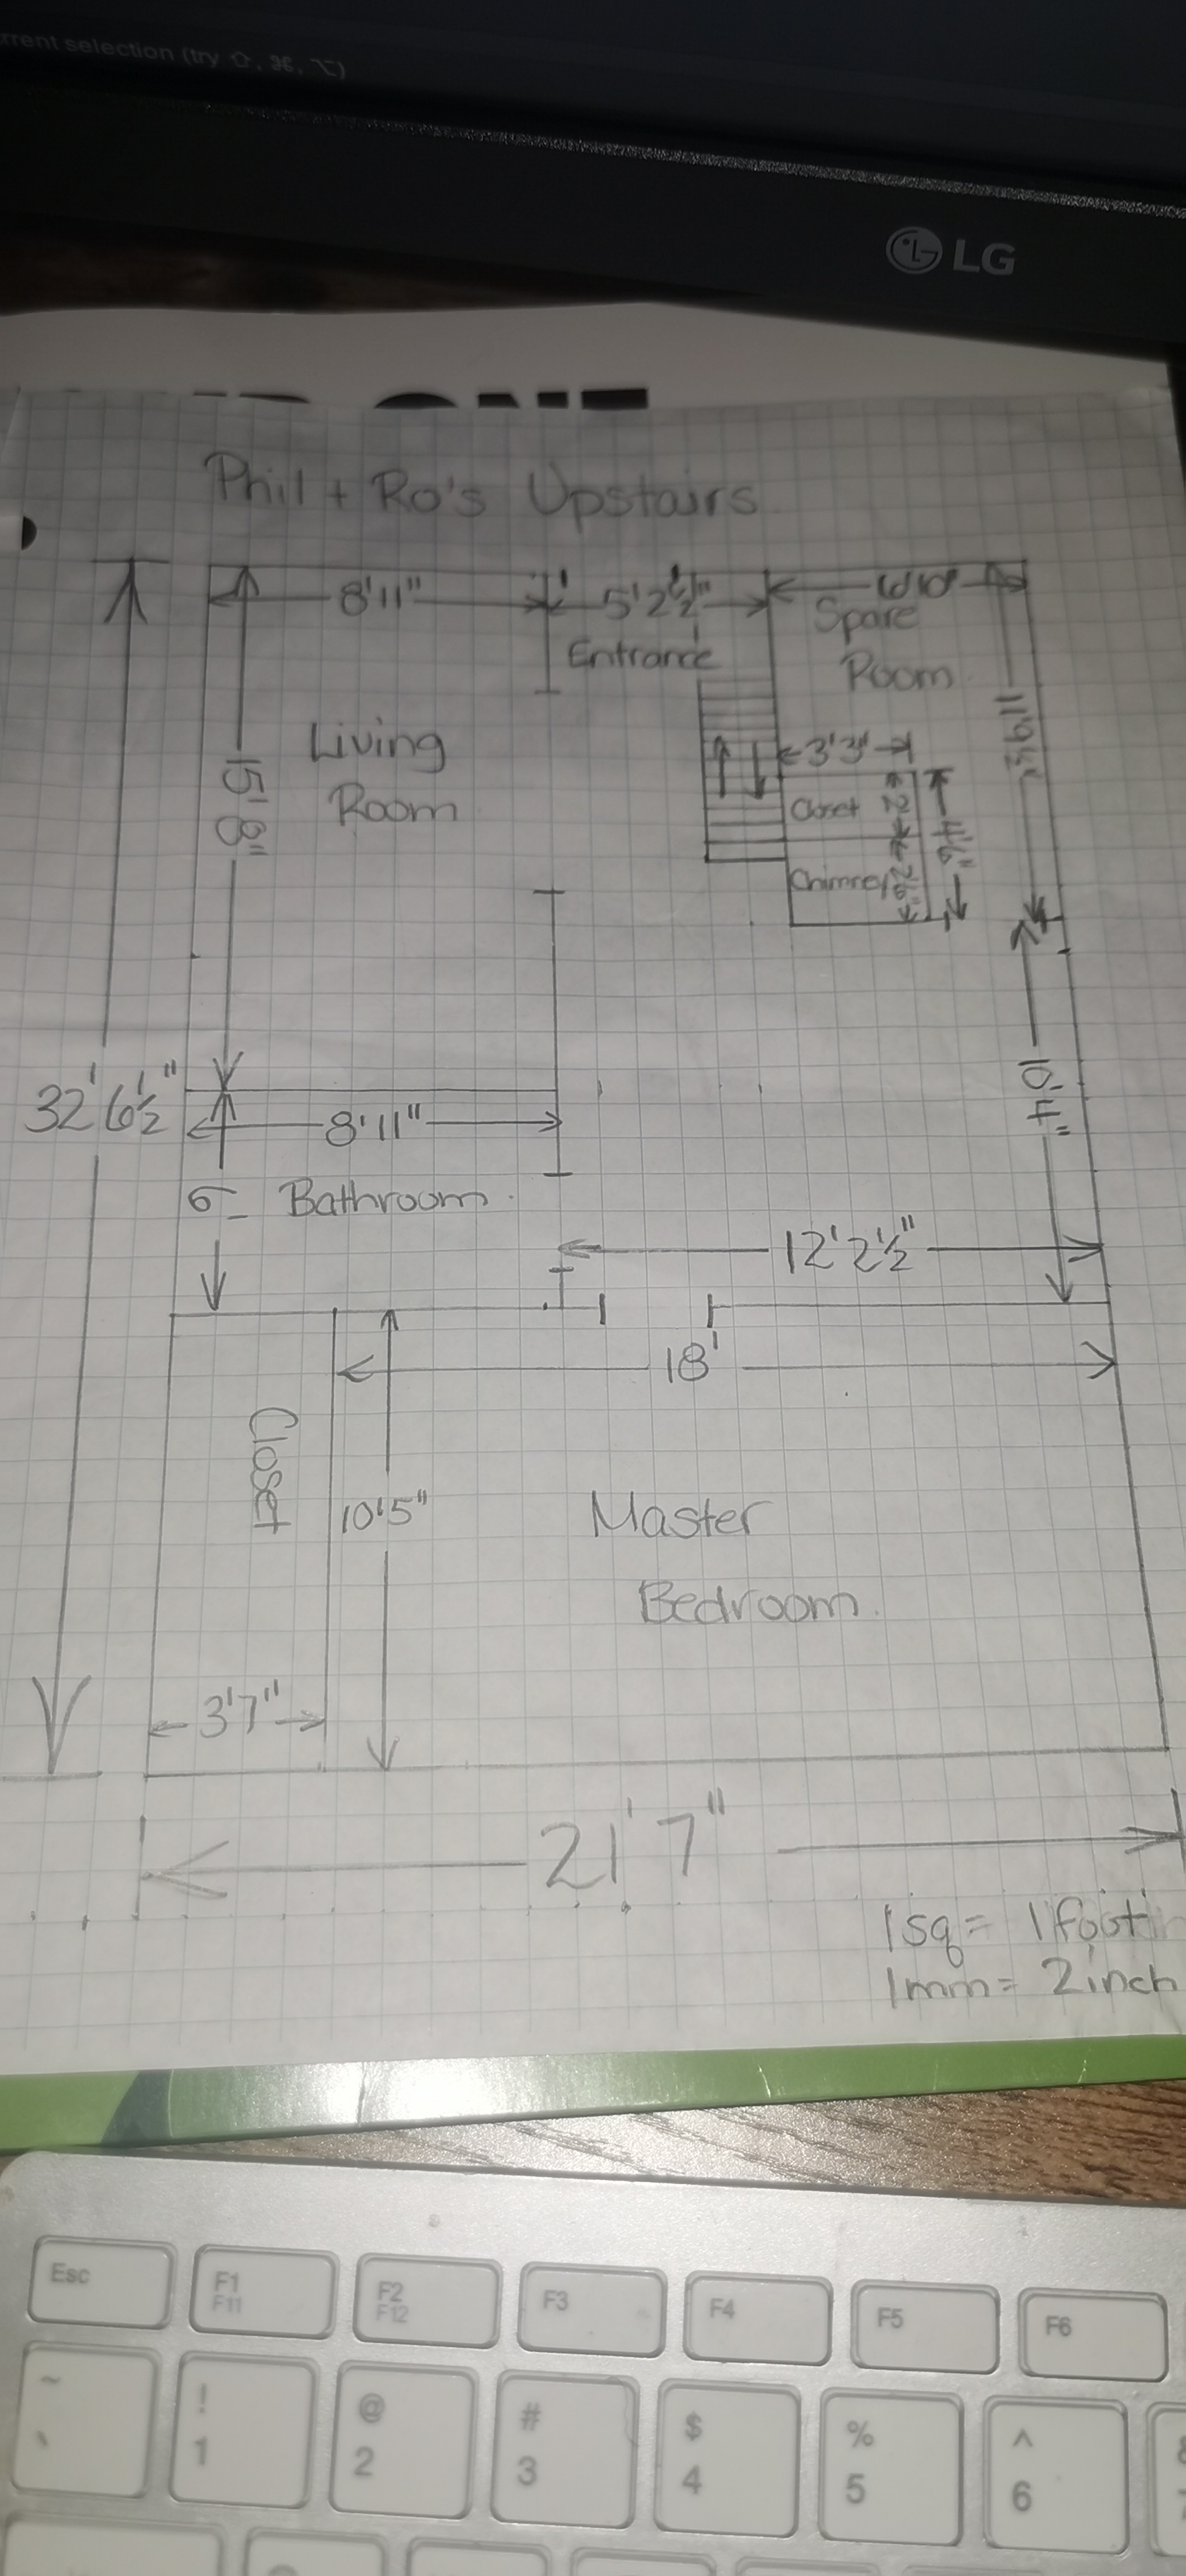 rrent selection (try ⇧, ⌘, ⌥)
LG
Phil + Ro's Upstairs
8'11"
5'2½"
Entrance
Spare
Room
11'9½"
Living
Room
15'8"
3'3"
Closet
2'
4'6"
Chimney
2'6"
10'4"
32'6½"
8'11"
6
Bathroom
12'2½"
18'
Closet
10'5"
Master
Bedroom
3'7"
21'7"
1sq = 1foot
1mm = 2inch
Esc
F1
F11
F2
F12
F3
F4
F5
F6
~
`
!
1
@
2
#
3
$
4
%
5
^
6